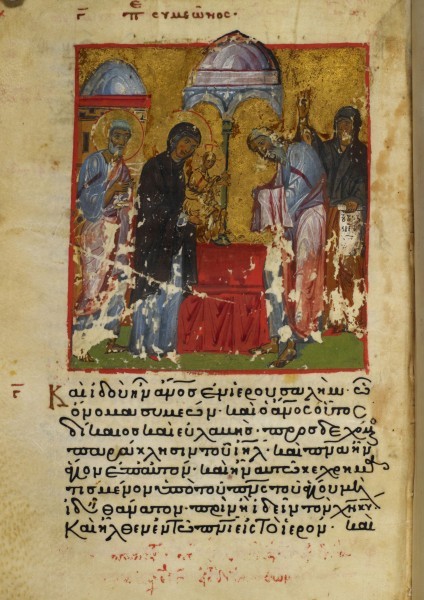 γ ΕΠ ΣΥΜΕΩΝΟΣ·
Καὶ ἰδοὺ ἦν ἄνος ἐν ιερουσαλὴμ· ὧ
ὄνομα συμεών· καὶ ὁ ἄνος οὗτος
δίκαιος καὶ εὐλαβής· προσδεχόμ
παράκλησιν τοῦ ιηλ· καὶ πνα ἦν ἅ
γιον ἐπ αὐτόν· καὶ ἦν αὐτῶ κεχρημα
τισμένον ὑπὸ τοῦ πνς τοῦ ἁγίου μὴ
ἰδεῖν θάνατον· πρὶν ἢ ἴδει τὸν χν κυ
Καὶ ἦλθεν ἐν τῶ πνι εἰς τὸ ἱερόν· καὶ